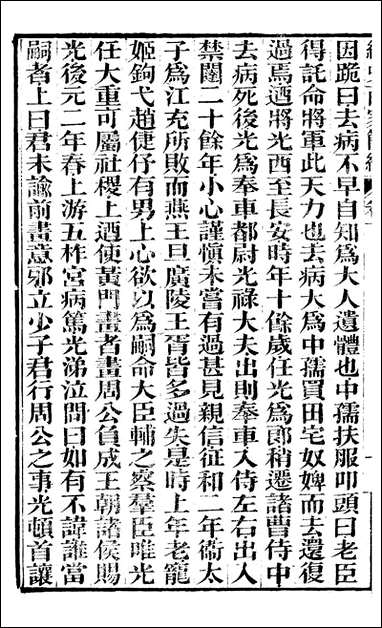 因跪曰去病不早自知爲大人遺體也中孺扶服叩頭曰老臣
得託命將軍此天力也去病大爲中孺買田宅奴婢而去還復
過焉迺將光西至長安時年十餘歲任光爲郎稍遷諸曹侍中
去病死後光爲奉車都尉光祿大夫出則奉車入侍左右出入
禁闥二十餘年小心謹愼未嘗有過甚見親信征和二年衞太
子爲江充所敗而燕王旦廣陵王胥皆多過失是時上年老寵
姬鉤弋趙倢伃有男上心欲以爲嗣命大臣輔之察羣臣唯光
任大重可屬社稷上迺使黃門畫者畫周公負成王朝諸侯賜
光後元二年春上游五柞宮病篤光涕泣問曰如有不諱誰當
嗣者上曰君未諭前畫意邪立少子君行周公之事光頓首讓